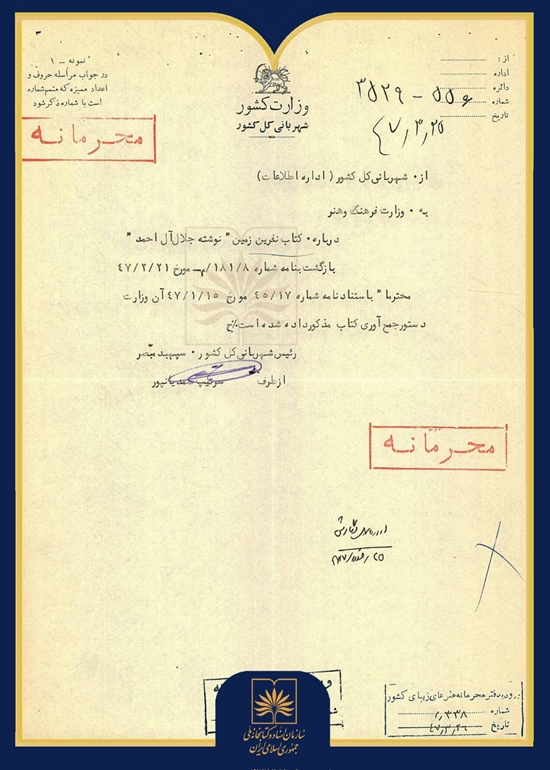 نمونه - ۱
در جواب مراسله حروف و
اعداد ممیزه که منضم شماره
است با شماره ذکر شود
از :
اداره
دائره
شماره ۵۵۶ - ۳۵۲۹
تاریخ ۴۷٫۳٫۲۵
وزارت کشور
شهربانی کل کشور
محرمانه
از • شهربانی کل کشور ( اداره اطلاعات )
به • وزارت فرهنگ و هنر
درباره • کتاب نفرین زمین " نوشته جلال آل احمد "
بازگشت بنامه شماره ۱۸۱/۸/م - مورخ ۴۷/۲/۲۱
محترما " باستناد نامه شماره ۴۵/۱۷ مورخ ۴۷/۱/۱۵ آن وزارت
دستور جمع آوری کتاب مذکور داده شده است
رئیس شهربانی کل کشور • سپهبد مبصر
از طرف سرتیپ صمدیانپور
محرمانه
ورود بدفتر محرمانه هنرهای زیبای کشور
شماره
تاریخ ۴۷٫۳٫۲۶
سازمان اسناد و کتابخانه ملی
جمهوری اسلامی ایران